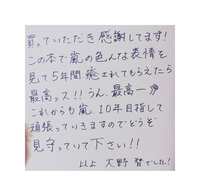 買っていただき感謝してます!
この本で嵐の色んな表情を
見て5年間癒されてもらえたら
最高ッス!!うん、最高一
これからも嵐、10年目指して
頑張っていきますのでどうぞ
見守っていて下さい!!
以上 大野 智でした!